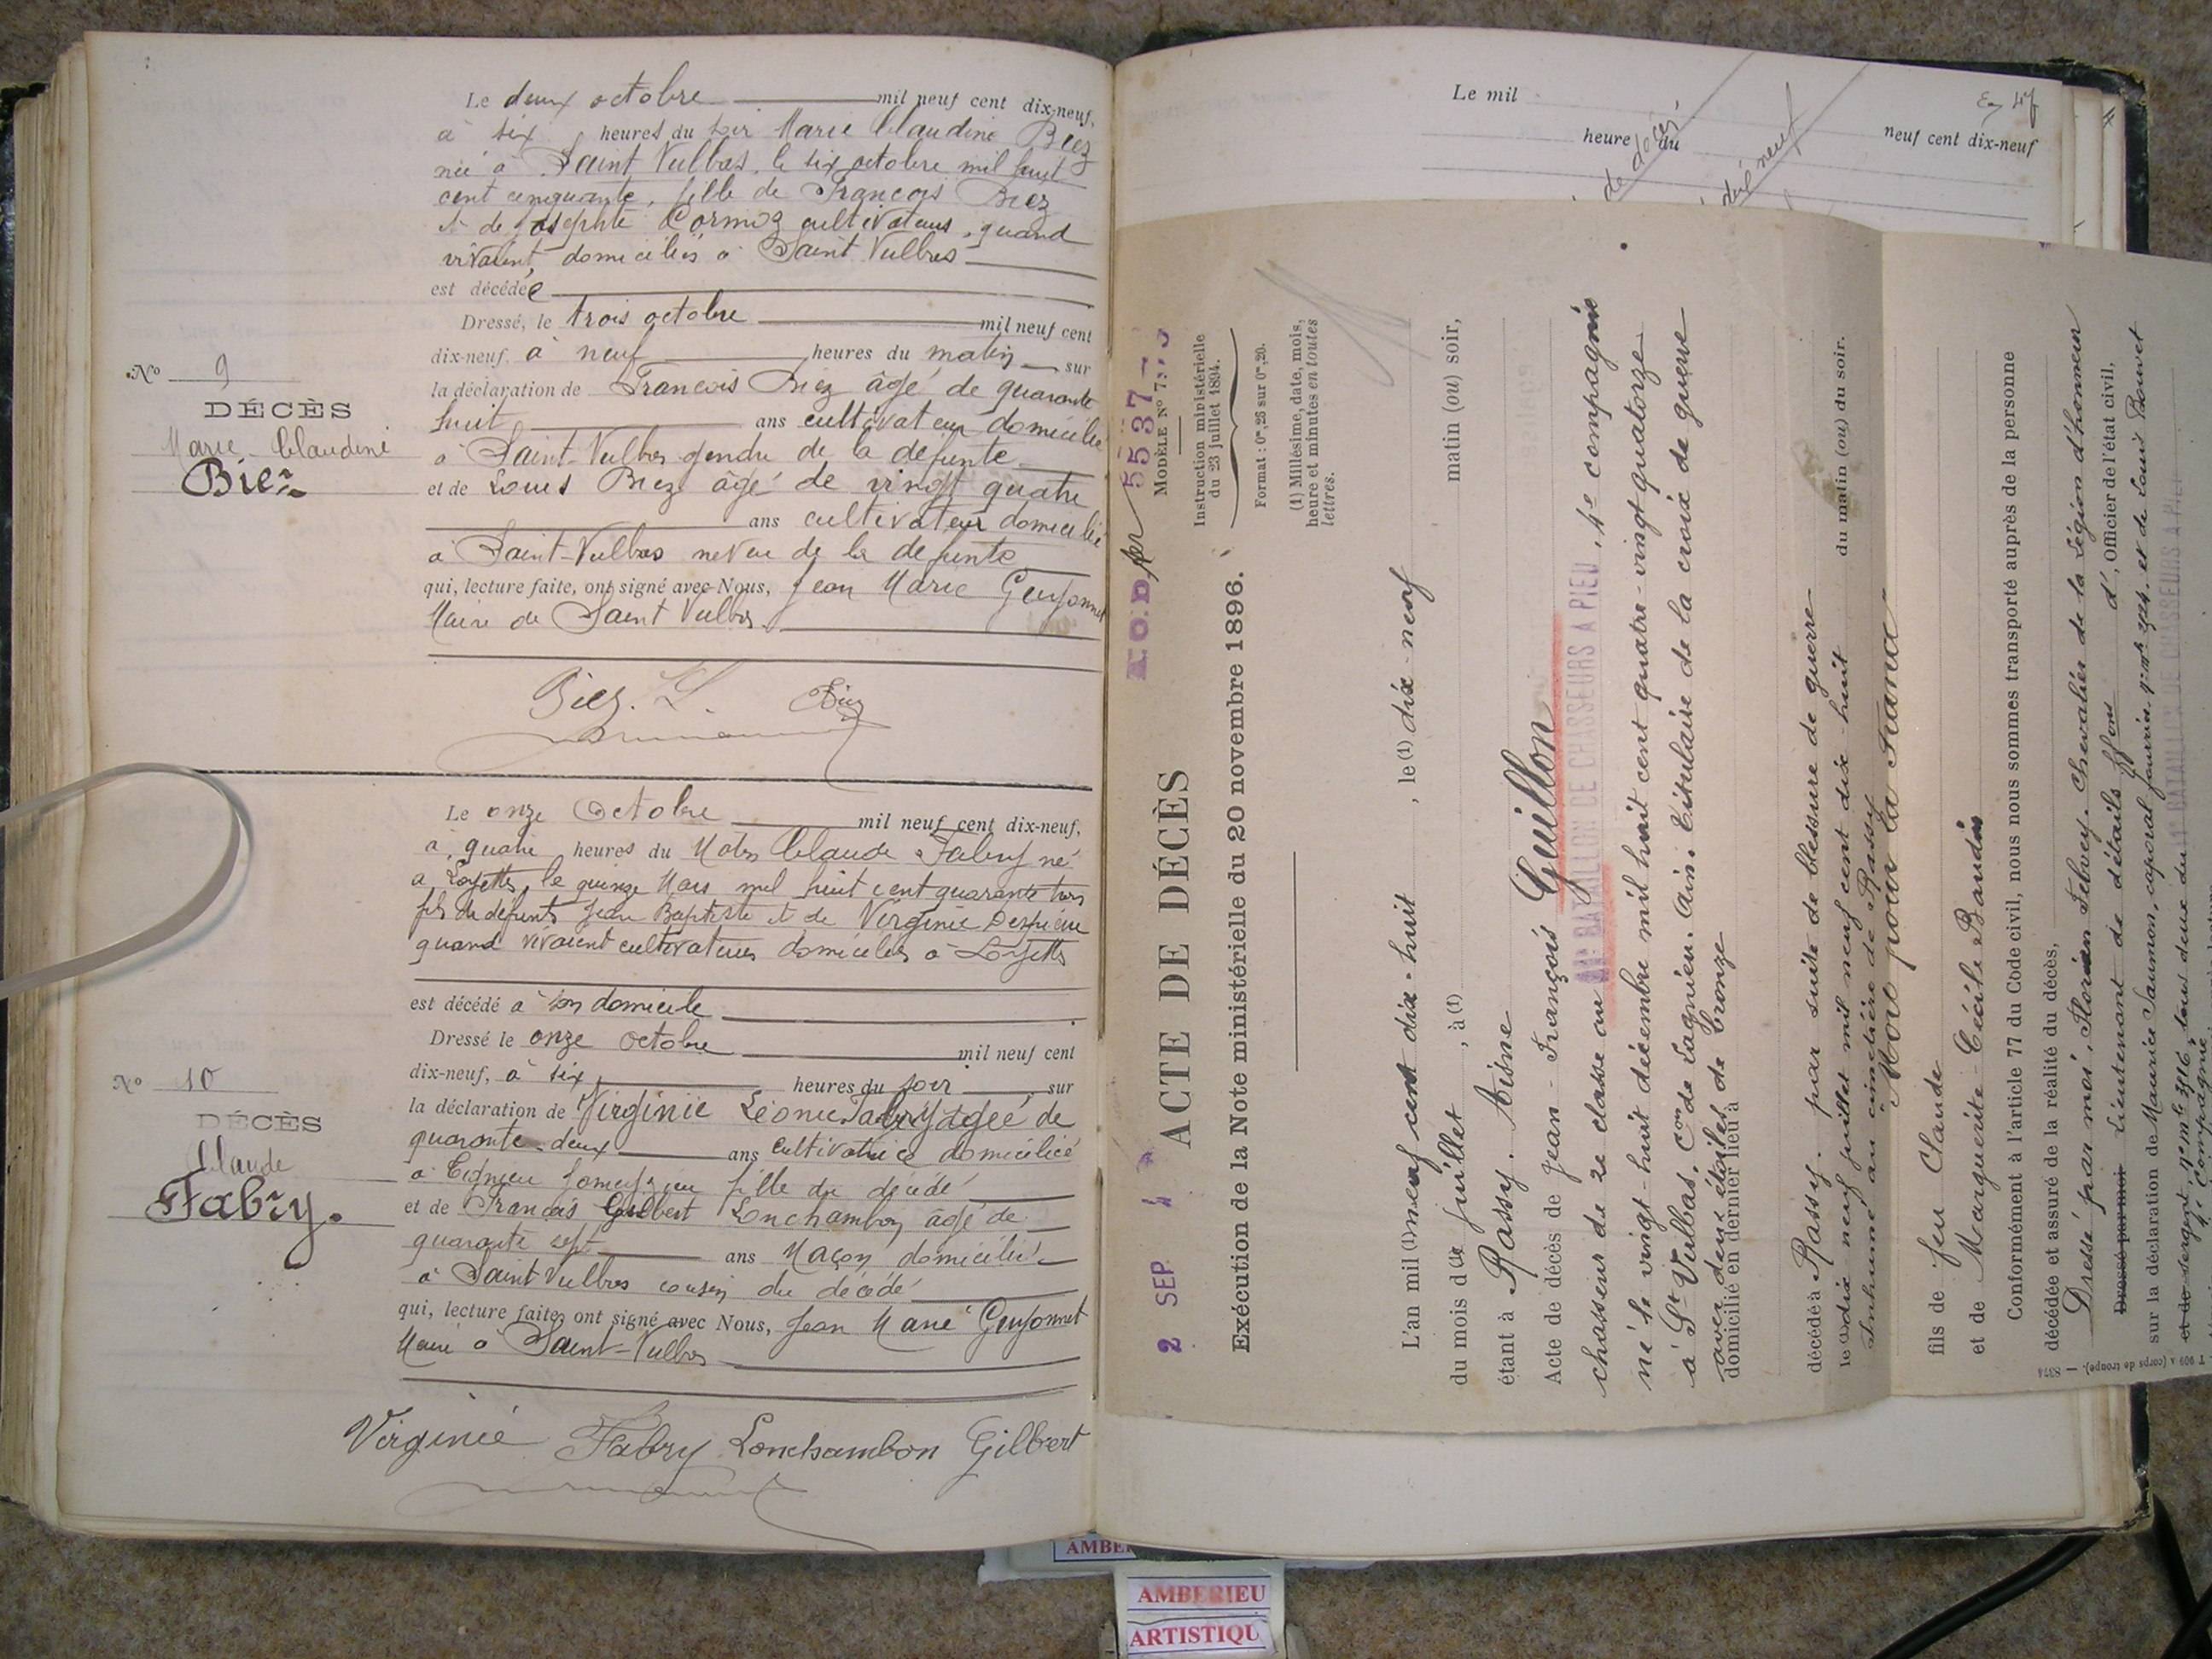 Le deux octobre mil neuf cent dix-neuf,
à six heures du soir Marie Claudine Biez
née à Saint Vulbas, le six octobre mil huit
cent cinquante, fille de François Biez
et de Josephte Cormoz cultivateurs, quand
vivaient, domiciliés à Saint Vulbas
est décédée
Dressé, le trois octobre mil neuf cent
dix-neuf, à neuf heures du matin sur
la déclaration de François Biez âgé de quarante
huit ans cultivateur domicilié
à Saint-Vulbas gendre de la defunte
et de Louis Biez âgé de vingt quatre
ans cultivateur domicilié
à Saint-Vulbas neveu de la defunte
qui, lecture faite, ont signé avec Nous, Jean Marie
Maire de Saint Vulbas
Biez. L. Biez
No 9
DÉCÈS
Marie Claudine
Biez
Le onze Octobre mil neuf cent dix-neuf,
à quatre heures du Matin Claude Fabry né
à Loyettes, le quinze Mars mil huit cent quarante trois
fils de défunts Jean Baptiste et de Virginie
quand vivaient cultivateurs domiciliés à Loyettes
est décédé à son domicile
Dressé le onze octobre mil neuf cent
dix-neuf, à six heures du soir sur
la déclaration de Virginie Léonie Fabry âgée de
quarante-deux ans cultivatrice domiciliée
à fille du décédé
et de François Gilbert Lonchambon âgé de
quarante sept ans Maçon domicilié
à Saint Vulbas cousin du décédé
qui, lecture faite, ont signé avec Nous, Jean Marie
Maire à Saint-Vulbas
Virginie Fabry Lonchambon Gilbert
No 10
DÉCÈS
Claude
Fabry.
Le mil
heure du
neuf cent dix-neuf
de décès
dix neuf
2 SEP
5537
MODÈLE No 7
Instruction ministérielle
du 23 juillet 1894.
Format : 0m,26 sur 0m,20.
(1) Millésime, date, mois,
heure et minutes en toutes
lettres.
ACTE DE DÉCÈS
Exécution de la Note ministérielle du 20 novembre 1896.
L'an mil (1) neuf cent dix-huit, le (1) dix-neuf
du mois de juillet, à (1) matin (ou) soir,
étant à Rassy. Aisne
Acte de décès de Jean-François Guillon
chasseur de 2e classe au 11e BATAILLON DE CHASSEURS A PIED, 4e compagnie
né le vingt-huit décembre mil huit cent quatre-vingt quatorze
à St Vulbas. Con de Lagnieu. Ain. titulaire de la croix de guerre
avec deux étoiles de bronze
domicilié en dernier lieu à
décédé à Rassy. par suite de blessure de guerre
le dix neuf juillet mil neuf cent dix-huit du matin (ou) du soir.
Inhumé au cimetière de Rassy
Mort pour la France
fils de feu Claude
et de Marguerite-Cécile Baudin
Conformément à l'article 77 du Code civil, nous nous sommes transporté auprès de la personne
décédée et assuré de la réalité du décès,
Dressé par moi, Florian Chevalier de la Légion d'honneur
Dressé par moi Lieutenant de détails ffons d', Officier de l'état civil,
sur la déclaration de Maurice Saumon, caporal fourrier et de Louis
et de sergent tous deux du 11e BATAILLON DE CHASSEURS A PIED
4e Compagnie
AMBERIEU
ARTISTIQU